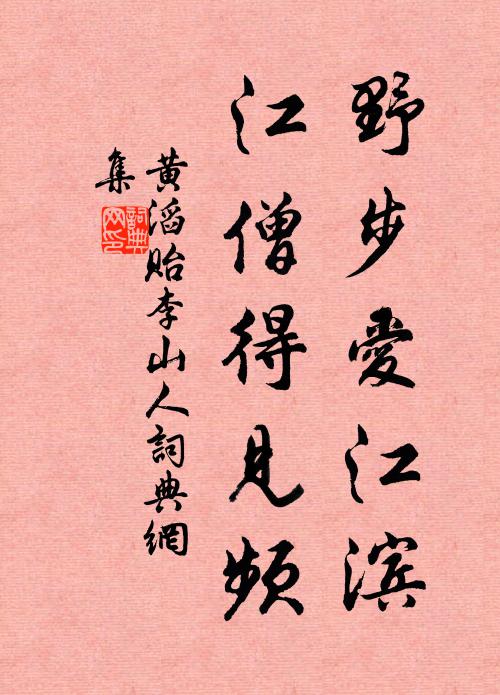 野步爱江滨
江僧得见频
黄滔贻李山人詞典網
集
詞典网印